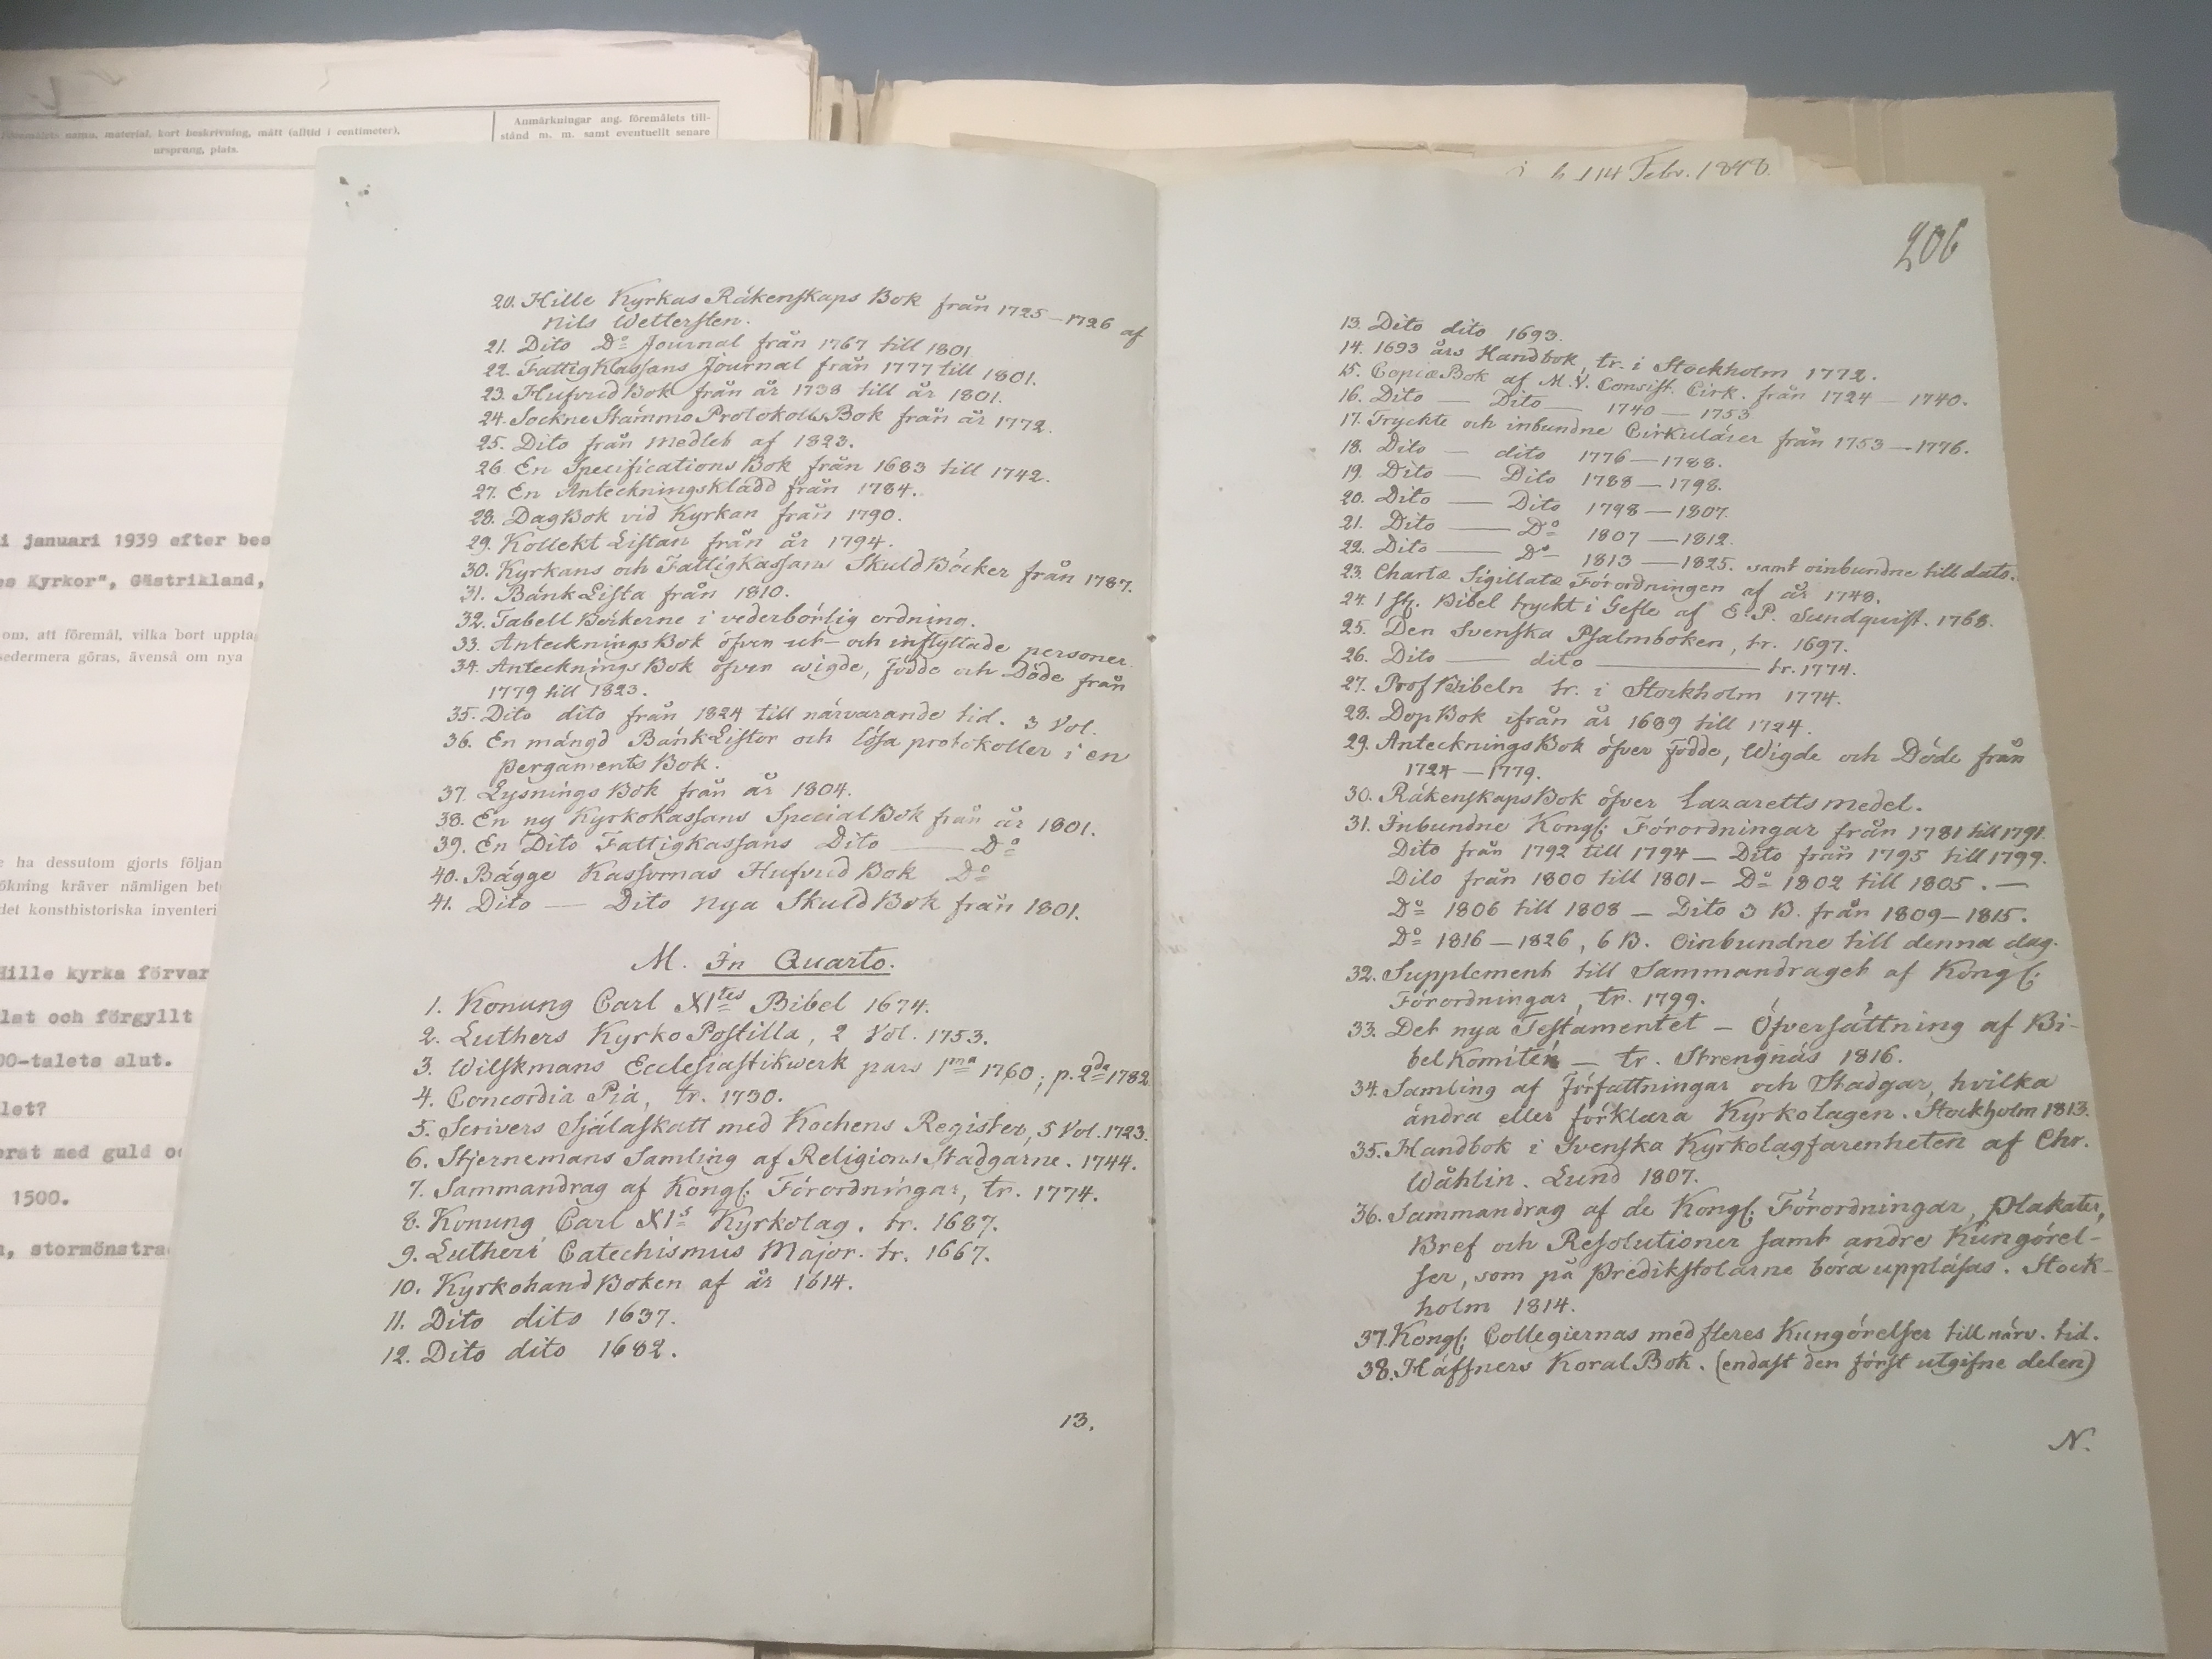 Föremålets namn, material, kort beskrivning, mått (alltid i centimeter),
ursprung, plats.
Anmärkningar ang. föremålets till-
stånd m. m. samt eventuellt senare
i januari 1939 efter bes
es Kyrkor", Gästrikland,
om, att föremål, vilka bort uppta
sedermera göras, ävenså om nya
e ha dessutom gjorts följan
ökning kräver nämligen bet
det konsthistoriska inventeri
Hille kyrka förvar
lat och förgyllt
00-talets slut.
let?
erat med guld o
1500.
, stormönstra
14 Febr. 1848.
20. Hille Kyrkas Räkenskaps Bok från 1725–1726 af
Nils Wettersten.
21. Dito Do Journal från 1767 till 1801
22. FattigKassans Journal från 1777 till 1801.
23. HufvudBok från år 1738 till år 1801.
24. SockneStämmoProtokollsBok från år 1772.
25. Dito från medleb af 1823.
26. En SpecificationsBok från 1683 till 1742.
27. En Anteckningskladd från 1784.
28. DagBok vid Kyrkan från 1790.
29. KollektListan från år 1794.
30. Kyrkans och FattigKassans SkuldBöcker från 1787.
31. BänkLista från 1810.
32. TabellBöckerne i vederbörlig ordning.
33. AnteckningsBok öfver ut- och inflyttade personer
34. AnteckningsBok öfver wigde, födde och Döde från
1779 till 1823.
35. Dito dito från 1824 till närvarande tid. 3 Vol.
36. En mängd BänkListor och lösa protokoller i en
pergamentsBok.
37. LysningsBok från år 1804.
38. En ny KyrkoKassans SpecialBok från år 1801.
39. En Dito FattigKassans Dito — Do
40. Bägge Kassornas HufvudBok Do
41. Dito — Dito nya SkuldBok från 1801.
M. In Quarto.
1. Konung Carl XItes Bibel 1674.
2. Luthers KyrkoPostilla, 2 Vol. 1753.
3. Wilskmans Ecclesiastikwerk pars 1ma 1760; p. 2da 1782
4. Concordia Pia, tr. 1730.
5. Scrivers Själaskatt med Kochens Register, 5 Vol. 1723.
6. Stjernemans Samling af ReligionsStadgarne. 1744.
7. Sammandrag af Kongl. Förordningar, tr. 1774.
8. Konung Carl XIs Kyrkolag. tr. 1687.
9. Lutheri Catechismus Major. tr. 1667.
10. KyrkohandBoken af år 1614.
11. Dito dito 1637.
12. Dito dito 1682.
13.
206
13. Dito dito 1693.
14. 1693 års Handbok, tr. i Stockholm 1772.
15. CopiæBok af M. V. Consist. Cirk. från 1724 — 1740.
16. Dito — Dito — 1740 — 1753
17. Tryckte och inbundne Cirkulärer från 1753 — 1776.
18. Dito — dito 1776 — 1788.
19. Dito — Dito 1788 — 1798.
20. Dito — Dito 1798 — 1807.
21. Dito — Do 1807 — 1812.
22. Dito — Do 1813 — 1825. samt oinbundne till dato.
23. Chartæ Sigillatæ Förordningen af år 1748.
24. 1 st. Bibel tryckt i Gefle af E. P. Sundquist. 1768.
25. Den Svenska Psalmboken, tr. 1697.
26. Dito — dito — tr. 1774.
27. ProfBibeln tr. i Stockholm 1774.
28. DopBok ifrån år 1689 till 1724.
29. AnteckningsBok öfver födde, Wigde och Döde från
1724 — 1779.
30. RäkenskapsBok öfver Lazarettsmedel.
31. Inbundne Kongl. Förordningar från 1781 till 1791.
Dito från 1792 till 1794 — Dito från 1795 till 1799.
Dito från 1800 till 1801 — Do 1802 till 1805. —
Do 1806 till 1808 — Dito 3 B. från 1809 — 1815.
Do 1816 — 1826, 6 B. Oinbundne till denna dag.
32. Supplement till Sammandraget af Kongl.
Förordningar, tr. 1799.
33. Det nya Testamentet — Öfversättning af Bi-
belKomiten — tr. Strengnäs 1816.
34. Samling af författningar och Stadgar, hvilka
ändra eller förklara Kyrkolagen. Stockholm 1813.
35. Handbok i Svenska Kyrkolagfarenheten af Chr.
Wåhlin. Lund 1807.
36. Sammandrag af de Kongl. Förordningar, Plakater,
Bref och Resolutioner samt andre Kungörel-
ser, som på Predikstolarne böra uppläsas. Stock-
holm 1814.
37. Kongl. Collegiernas med fleres Kungörelser till närv. tid.
38. Häffners KoralBok. (endast den först utgifne delen)
N.